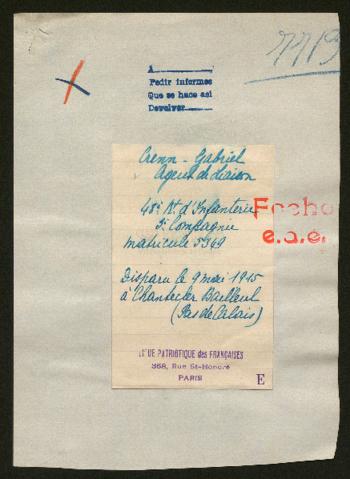 A
Pedir informes
Que se hace asi
Devolver
Crenn - Gabriel
Agent de liaison
48e Rt d'Infanterie
Compagnie
matricule 5369
Fecho
e.a.e.
Disparu le 9 mai 1915
à Chantecler Bailleul
(Pas de Calais)
GUE PATRIOTIQUE des FRANÇAISES
368, Rue St-Honoré
PARIS
E